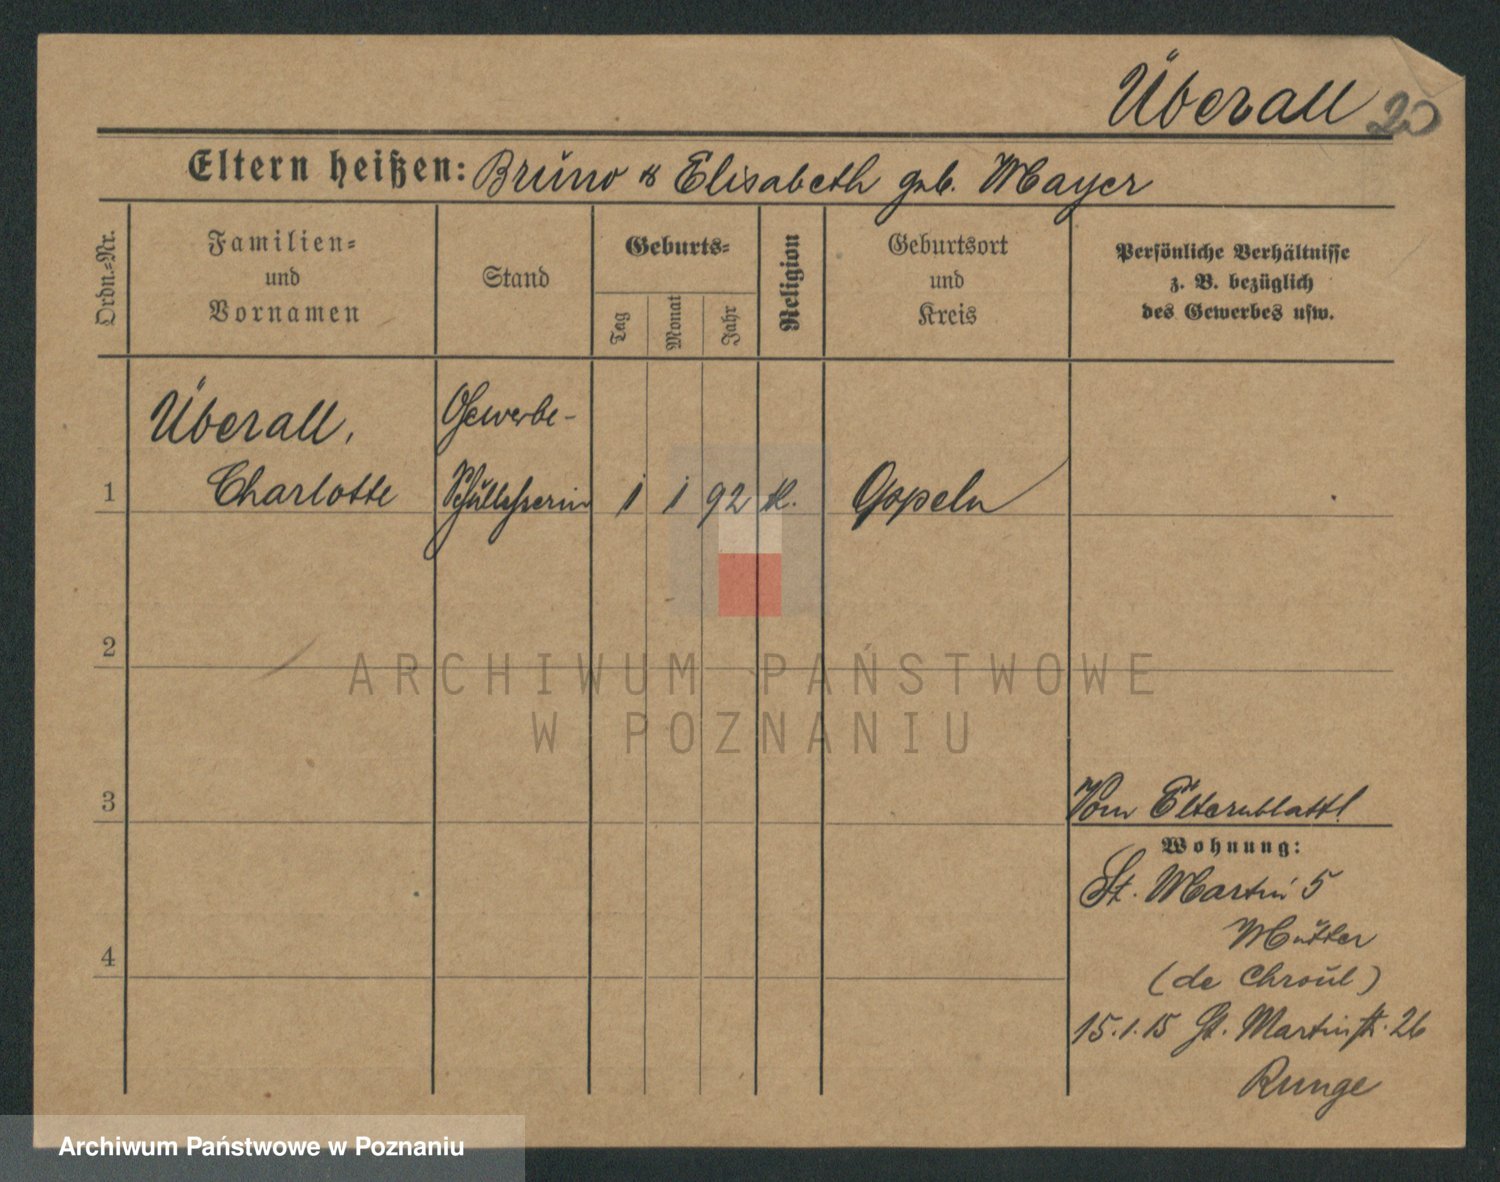 Überall 20
Eltern heißen: Bruno & Elisabeth geb. Mayer
Ordn.=Nr.
Familien=
und
Vornamen
Stand
Geburts=
Tag
Monat
Jahr
Religion
Geburtsort
und
Kreis
Persönliche Verhältnisse
z. B. bezüglich
des Gewerbes usw.
Überall,
Gewerbe-
1 Charlotte Schullehrerin 1 1 92 k. Oppeln
2
ARCHIWUM PAŃSTWOWE
W POZNANIU
3
Vom Elternblatt!
Wohnung:
St. Martin 5
Mutter
4
(de Chroul)
15.1.15 St. Martinstr. 26
Runge
Archiwum Państwowe w Poznaniu